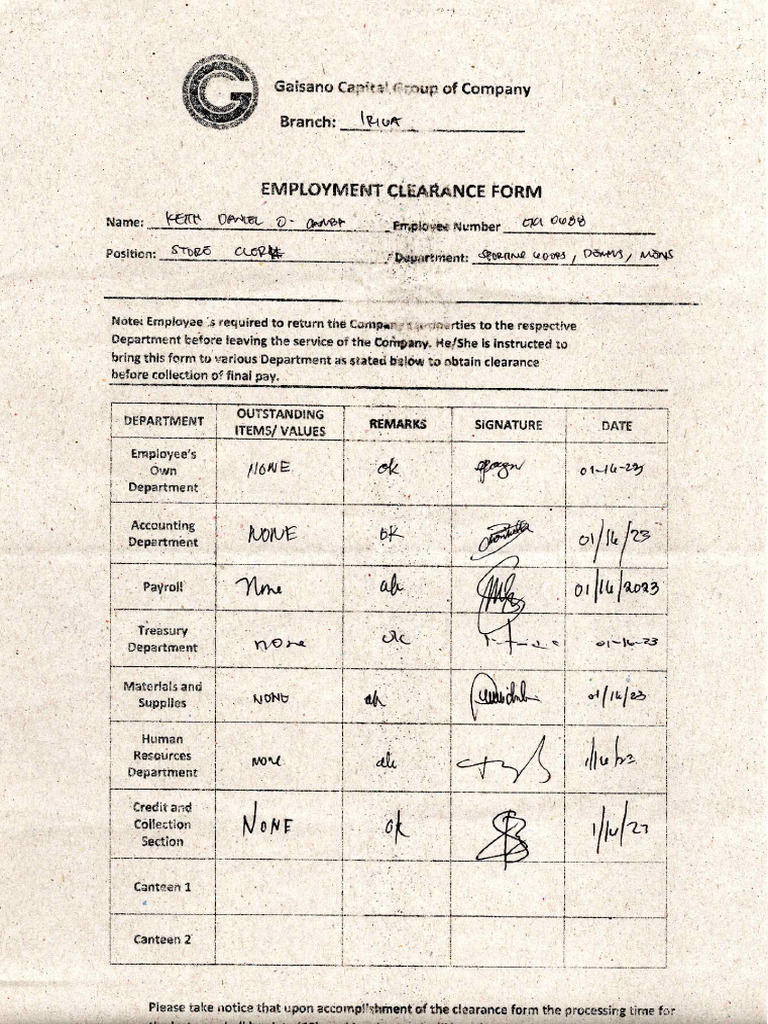 G
Gaisano Capital Group of Company
Branch: IRIGA
EMPLOYMENT CLEARANCE FORM
Name: KEITH DANIEL O. Employee Number 0688
Position: STORE CLERK Department: SPORTING GOODS, DENIMS, MENS
Note: Employee is required to return the Company properties to the respective
Department before leaving the service of the Company. He/She is instructed to
bring this form to various Department as stated below to obtain clearance
before collection of final pay.
DEPARTMENT OUTSTANDING ITEMS/ VALUES REMARKS SIGNATURE DATE
Employee's Own Department NONE ok 01-16-23
Accounting Department NONE OK 01/16/23
Payroll None ok 01/16/2023
Treasury Department none ok 01-16-23
Materials and Supplies NONE ok 01/16/23
Human Resources Department none ok 1/16/23
Credit and Collection Section NONE ok 1/16/23
Canteen 1
Canteen 2
Please take notice that upon accomplishment of the clearance form the processing time for